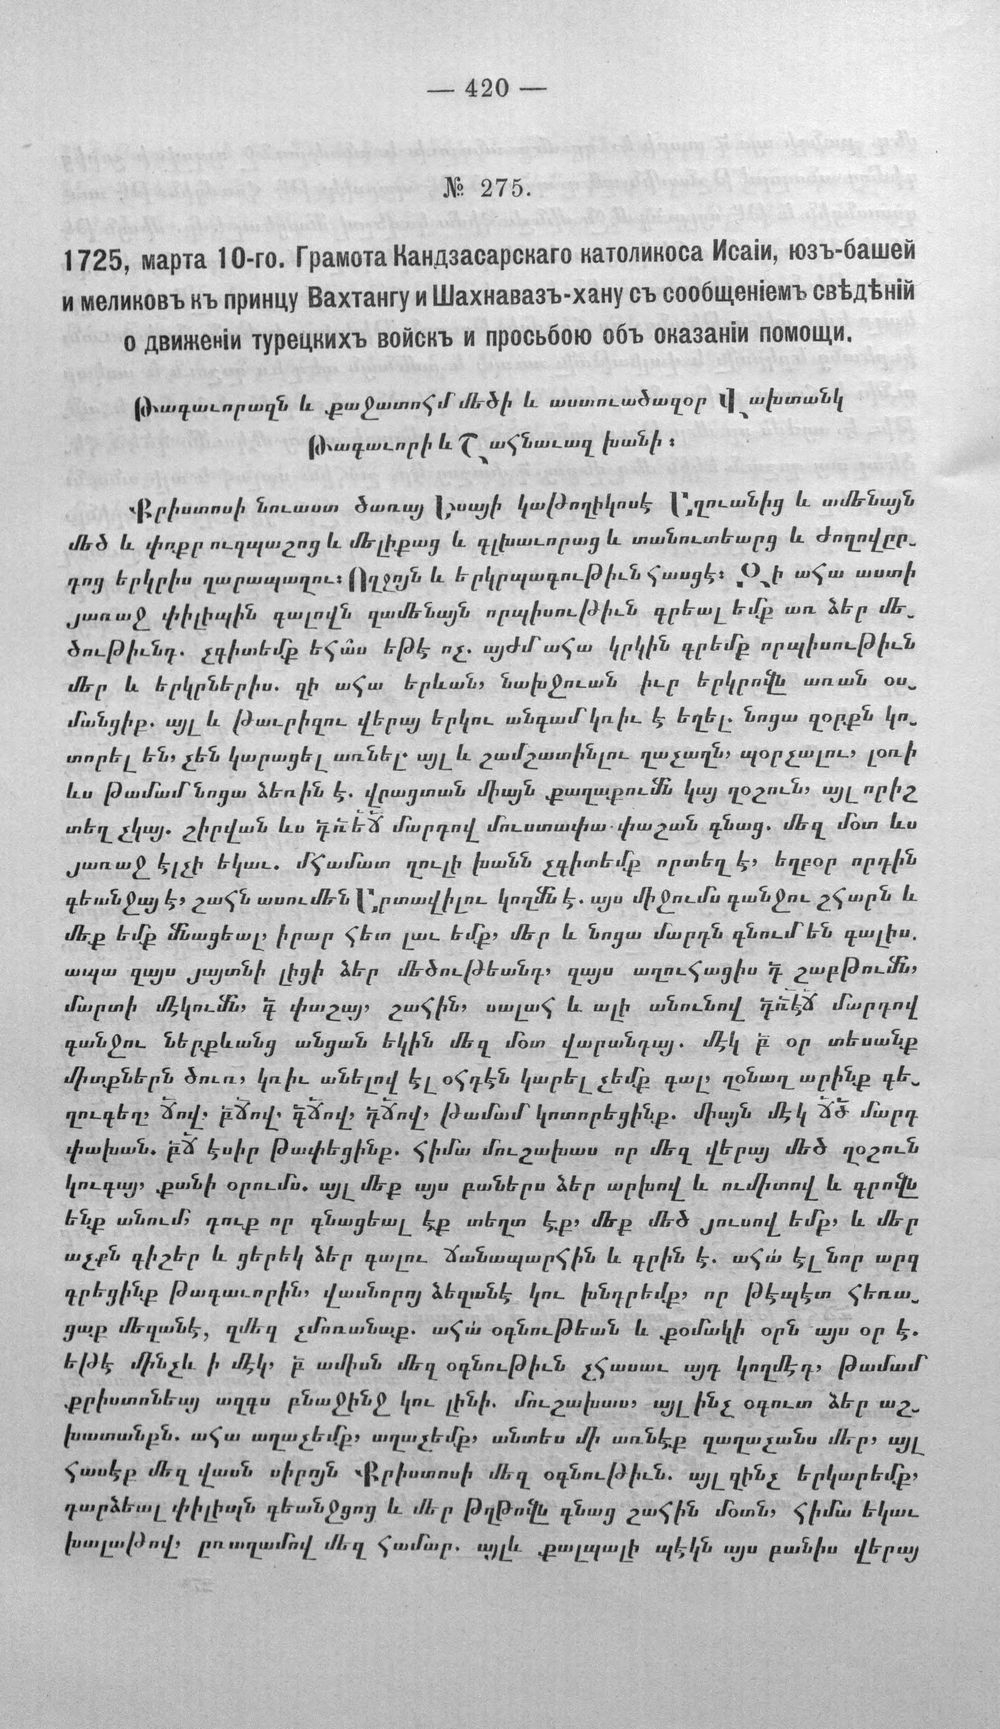 — 420 —
№ 275.
1725, марта 10-го. Грамота Кандзасарскаго католикоса Исаіи, юзъ-башей
и меликовъ къ принцу Вахтангу и Шахнавазъ-хану съ сообщеніемъ свѣдѣній
о движеніи турецкихъ войскъ и просьбою объ оказаніи помощи.
Թագաւորազն և քաջատոհմ մեծի և աստուածազօր Վախտանկ
Թագաւորի և Շահնաւազ խանի։
Քրիստոսի նուաստ ծառայ Եսայի կաթողիկոսէ Աղուանից և ամենայն
մեծ և փոքր ուզպաշոց և մելիքաց և գլխաւորաց և տանուտեարց և ժողովըր-
դոց երկրիս ղարապաղու։ Ողջոյն և երկրպագութիւն հասցէ։ Զի ահա աստի
յառաջ փիլիպին գալովն զամենայն որպիսութիւն գրեալ եմք առ ձեր մե-
ծութիւնդ. չգիտեմք եհաս եթէ ոչ. այժմ ահա կրկին գրեմք որպիսութիւն
մեր և երկրներիս. զի ահա երևան, նախջուան իւր երկրովն առան օս-
մանցիք. այլ և թաւրիզու վերայ երկու անգամ կռիւ է եղել. նոցա զօրքն կո-
տորել են, չեն կարացել առնել. այլ և շամշատինլու ղաչաղն, պօրչալու, լօռի
ևս թամամ նոցա ձեռին է. վրացտան միայն քաղաքումն կայ ղօշուն, այլ որիշ
տեղ չկայ. շիրվան ևս մարդով մուստափա փաշան գնաց. մեզ մօտ ևս
յառաջ էլչի եկաւ. մհամատ ղուլի խանն չգիտեմք որտեղ է, եղբօր որդին
գեանջայ է, շահն ասում են Արտավիլու կողմն է. այս միջումս գանջու շհարն և
մեք եմք մնացեալ, իրար հետ լաւ եմք, մեր և նոցա մարդն գնում են գալիս.
ապա զայս յայտնի լիցի ձեր մեծութեանդ, զայս աղուհացիս գ շաբթումն,
մարտի մէկումն, գ փաշայ, շահին, սալահ և ալի անունով մարդով
գանջու ներքևանց անցան եկին մեզ մօտ վարանդայ. մէկ բ օր տեսանք
միտքներն ծուռ, կռիւ անելով էլ օհդէն կարել չեմք գալ, ղօնաղ արինք գե-
ղուգեղ, ճով, բճով, գճով, դճով, թամամ կոտորեցինք. միայն մէկ ճծ մարդ
փախան. բճ էսիր թափեցինք. հիմա մուշախաս որ մեզ վերայ մեծ ղօշուն
կուգայ, քանի օրումս. այլ մեք այս բաներս ձեր արխով և ումիտով և գրովն
ենք անում, դուք որ գնացեալ էք տեղտ էք, մեք մեծ յուսով եմք, և մեր
աչքն գիշեր և ցերեկ ձեր գալու ճանապարհին և գրին է. ահա էլ նոր արզ
գրեցինք թագաւորին, վասնորոյ ձեզանէ կու խնդրեմք, որ թէպէտ հեռա-
ցաք մեզանէ, զմեզ չմոռանաք. ահա օգնութեան և քօմակի օրն այս օր է.
եթէ մինչև ի մէկ, բ ամիսն մեզ օգնութիւն չհասաւ այդ կողմէդ, թամամ
քրիստոնեայ ազգս բնաջինջ կու լինի. մուշախաս, այլ ինչ օգուտ ձեր աշ-
խատանքն. ահա աղաչեմք, աղաչեմք, անտես մի առնէք զաղաչանս մեր, այլ
հասէք մեզ վասն սիրոյն Քրիստոսի մեզ օգնութիւն. այլ զինչ երկարեմք,
դարձեալ փիլիպն գեանջցոց և մեր թղթովն գնաց շահին մօտն, հիմա եկաւ
խալաթով, ըռաղամով մեզ համար. այլև քալպալի պէկն այս բանիս վերայ